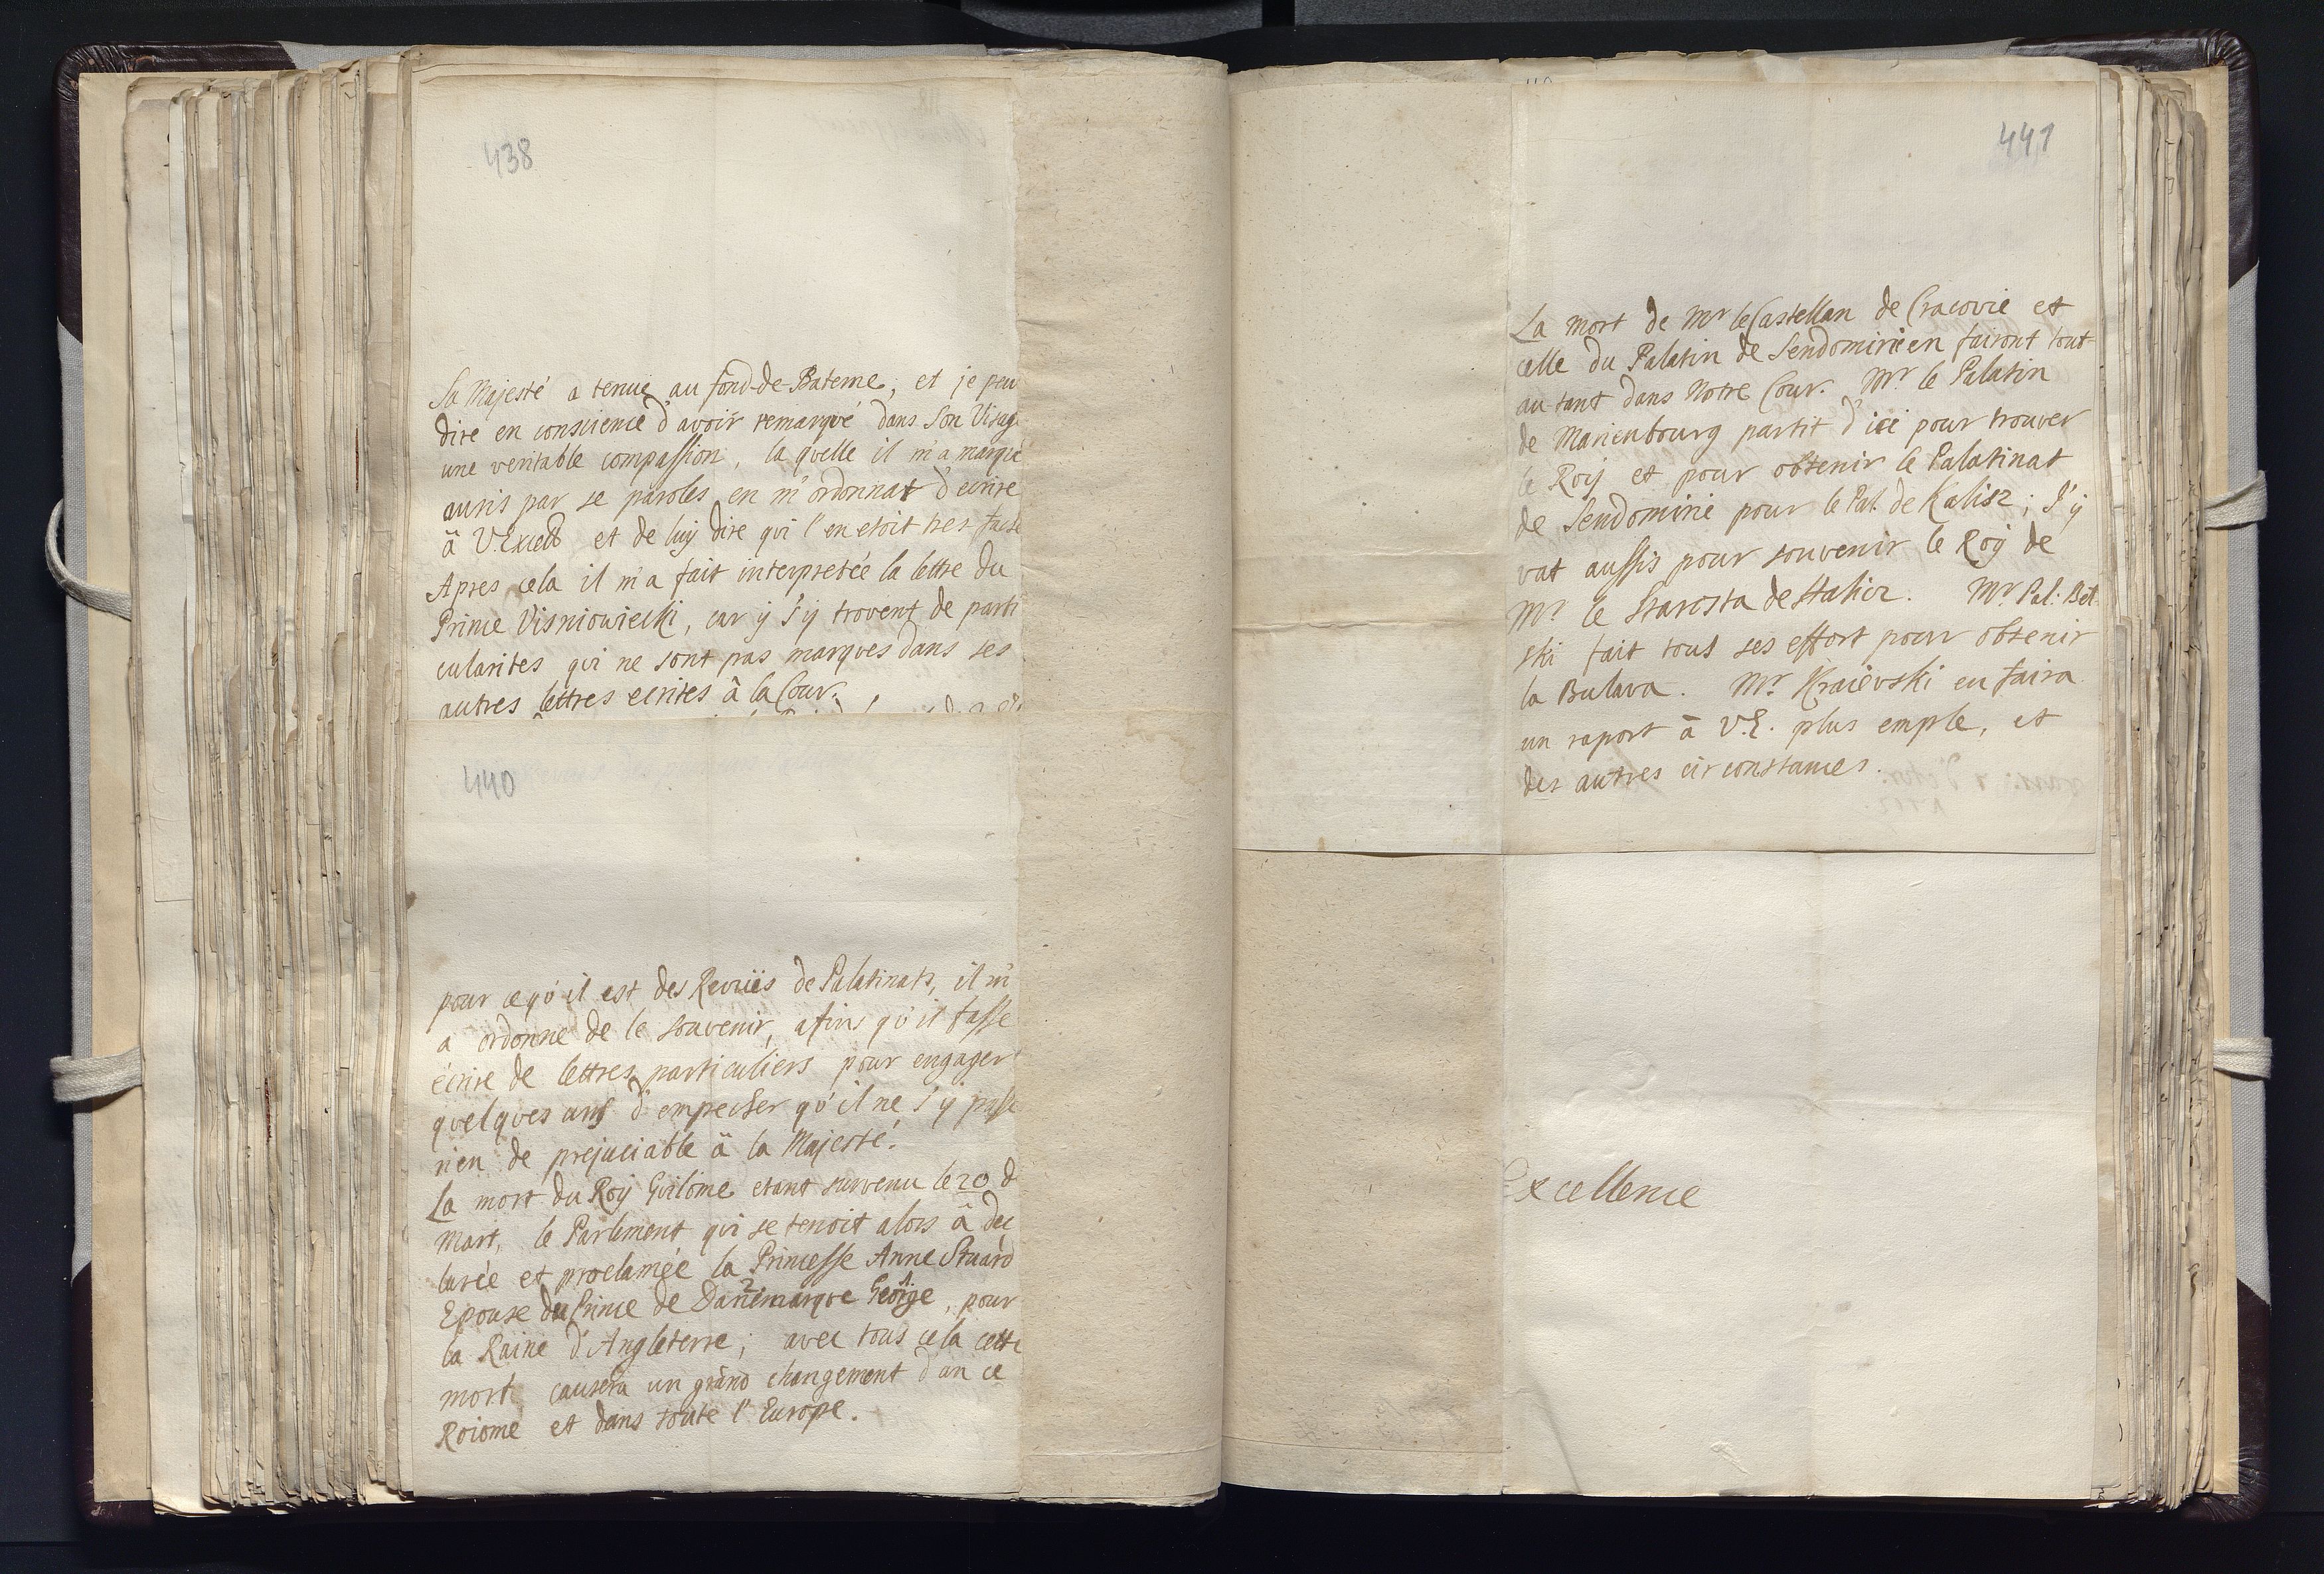 438
Sa Majesté a tenue au fond-de-Bateme, et je peu
dire en conscience d'avoir remarqué dans Son Visage
une veritable compassion, la quelle il m'a marqué
aussis par se paroles en m'ordonnat d'ecrire
à V. Excell et de luy dire qvi l'en etoit tres faché
Apres cela il m'a fait interpretée la lettre du
Prince Visniowiecki, car y s'y trovent de parti
cularites qvi ne sont pas marqves dans ses
autres lettres ecrites à la Cour.
440
pour ce qv'il est des Revües de Palatinats, il m'
a ordonne de le souvenir, afins qv'il fasse
écrire de lettres particuliers pour engager
qvelqves uns d'empecher qv'il ne s'y passe
rien de prejuciable à la Majesté.
La mort du Roy Gvilôme etant survenu le 20 d
Mart, le Parlement qvi se tenoit alors à dec
larée et proclamée la Princesse Anne Stuard
Epouse du Prince de Dannemarqve 2 George 1, pour
la Raine d'Angleterre; avec tous cela cette
mort causera un grand changement d'an ce
Roiome et dans toute l'Europe.
441
La mort de Mr le Castellan de Cracovie et
celle du Palatin de Sendomirie en fairont tout
au-tant dans Notre Cour. Mr le Palatin
de Marienbourg partit d'ici pour trouver
le Roy et pour obtenir le Palatinat
de Sendomirie pour le Pal. de Kalisz; S'y
vat aussis pour souvenir le Roy de
Mr le Starosta de Halicz. Mr Pal: Bel
ski fait tous ses effort pour obtenir
la Bulava. Mr Kraievski en faira
un raport à V.E. plus emple, et
des autres circonstances.
Excellence